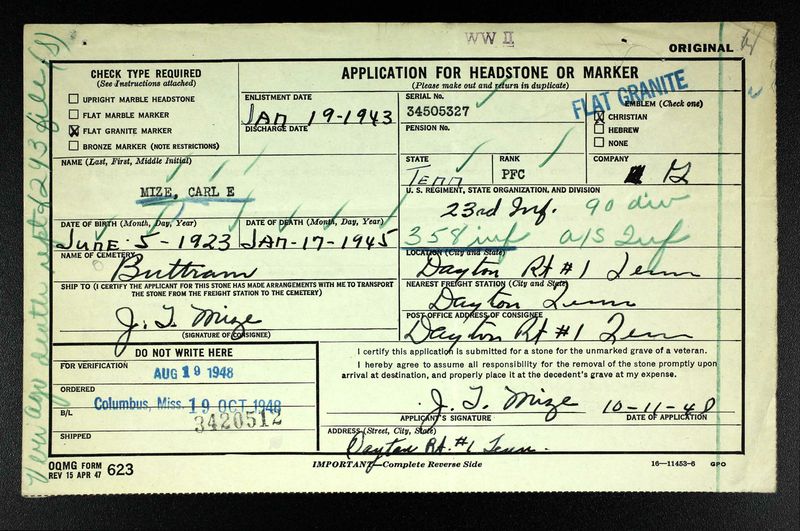 WW II
ORIGINAL
CHECK TYPE REQUIRED
(See Instructions attached)
UPRIGHT MARBLE HEADSTONE
FLAT MARBLE MARKER
X FLAT GRANITE MARKER
BRONZE MARKER (NOTE RESTRICTIONS)
APPLICATION FOR HEADSTONE OR MARKER
(Please make out and return in duplicate)
ENLISTMENT DATE
JAN 19-1943
DISCHARGE DATE
SERIAL No.
34505327
PENSION No.
FLAT GRANITE
EMBLEM (Check one)
X CHRISTIAN
HEBREW
NONE
NAME (Last, First, Middle Initial)
MIZE, CARL E
STATE
TENN
RANK
PFC
COMPANY
G
U. S. REGIMENT, STATE ORGANIZATION, AND DIVISION
23rd Inf. 90 div
358 inf a/s Inf
DATE OF BIRTH (Month, Day, Year)
JUNE-5-1923
DATE OF DEATH (Month, Day, Year)
JAN-17-1945
NAME OF CEMETERY
Buttram
LOCATION (City and State)
Dayton Rt #1 Tenn
SHIP TO (I CERTIFY THE APPLICANT FOR THIS STONE HAS MADE ARRANGEMENTS WITH ME TO TRANSPORT
THE STONE FROM THE FREIGHT STATION TO THE CEMETERY)
J. T. Mize
(SIGNATURE OF CONSIGNEE)
NEAREST FREIGHT STATION (City and State)
Dayton Tenn
POST OFFICE ADDRESS OF CONSIGNEE
Dayton Rt #1 Tenn
DO NOT WRITE HERE
FOR VERIFICATION
AUG 19 1948
ORDERED
Columbus, Miss. 19 OCT 1948
B/L
3420512
SHIPPED
I certify this application is submitted for a stone for the unmarked grave of a veteran.
I hereby agree to assume all responsibility for the removal of the stone promptly upon
arrival at destination, and properly place it at the decedent's grave at my expense.
J. T. Mize 10-11-48
APPLICANT'S SIGNATURE
DATE OF APPLICATION
ADDRESS (Street, City, State)
Dayton Rt. #1 Tenn.
OQMG FORM 623
REV 15 APR 47
IMPORTANT—Complete Reverse Side
16—11453-6 GPO
death rept 293 file (S)